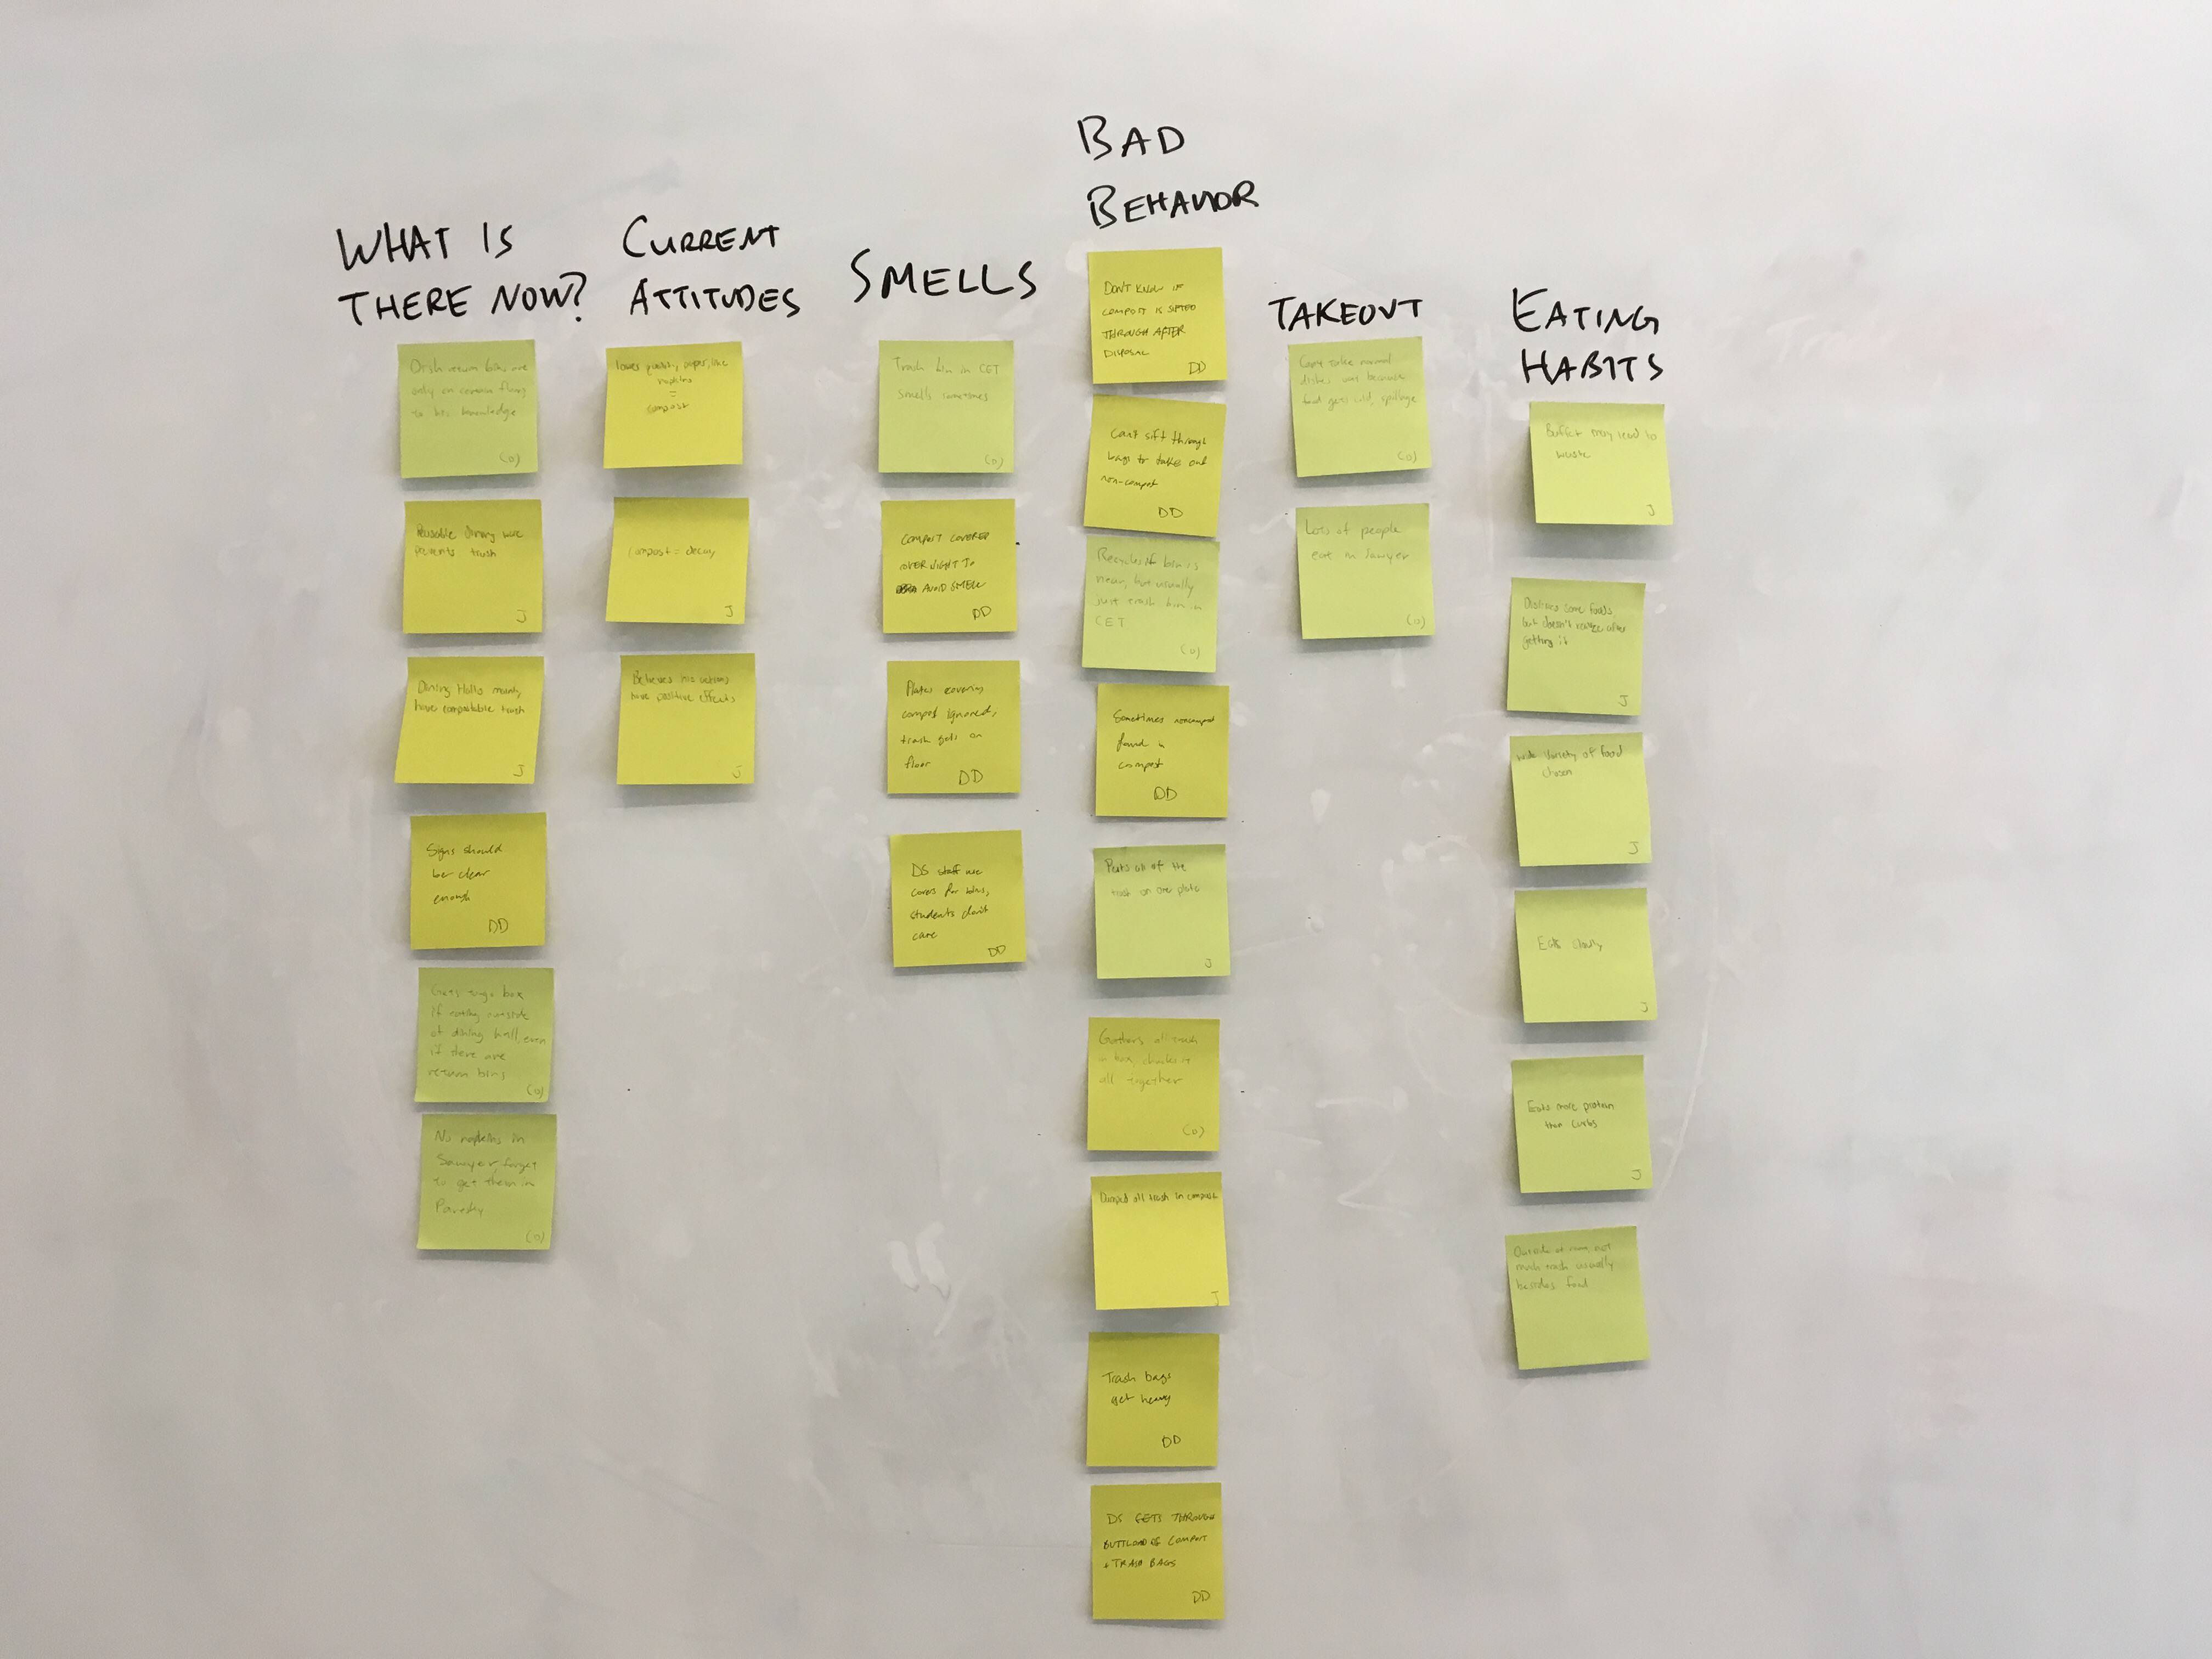 WHAT IS
THERE NOW?
Dish return bins are
only on certain floors
to his knowledge
(O)
Reusable dining ware
prevents trash
J
Dining Halls mainly
have compostable trash
J
Signs should
be clear
enough
DD
Gets to go box
if eating outside
of dining hall, even
if there are
return bins
(O)
No napkins in
Sawyer, forget
to get them in
Paresky
(O)
CURRENT
ATTITUDES
paper, like
napkins
=
compost
compost = decay
J
Believes his actions
have positive effects
J
SMELLS
Trash bin in CET
smells sometimes
(O)
COMPOST COVERED
OVERNIGHT TO
AVOID SMELL
DD
Plates covering
compost ignored,
trash gets on
floor
DD
DS staff use
covers for bins,
students don't
care
DD
BAD
BEHAVIOR
DON'T KNOW IF
COMPOST IS SIFTED
THROUGH AFTER
DISPOSAL
DD
Can't sift through
bags to take out
non-compost
DD
Recycles if bin is
near, but usually
just trash bin in
CET
(O)
Sometimes noncompost
found in
compost
DD
Puts all of the
trash on one plate
J
Gathers all trash
in box, chucks it
all together
(O)
Dumped all trash in compost
J
Trash bags
get heavy
DD
DS GETS THROUGH
BUTTLOAD OF COMPOST
+ TRASH BAGS
DD
TAKEOUT
take normal
dishes because
food gets cold, spillage
(O)
Lots of people
eat in Sawyer
(O)
EATING
HABITS
Buffet may lead to
waste
J
Dislikes some foods,
but doesn't realize after
getting it
J
wide variety of food
chosen
J
Eats slowly
J
Eats more protein
than carbs
J
Outside of room, not
much trash usually
besides food